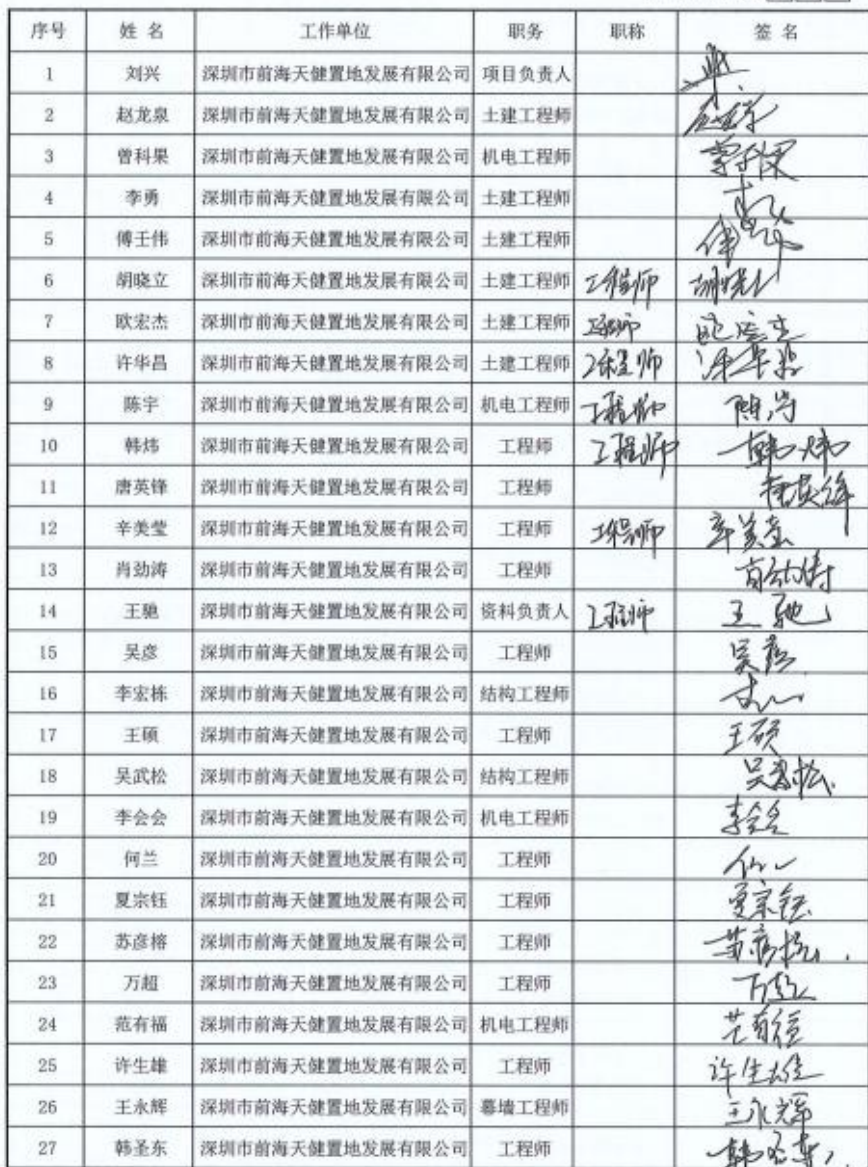 序号 姓 名 工作单位 职务 职称 签 名
1 刘兴 深圳市前海天健置地发展有限公司 项目负责人
2 赵龙泉 深圳市前海天健置地发展有限公司 土建工程师
3 曾科果 深圳市前海天健置地发展有限公司 机电工程师 曾科果
4 李勇 深圳市前海天健置地发展有限公司 土建工程师
5 傅壬伟 深圳市前海天健置地发展有限公司 土建工程师
6 胡晓立 深圳市前海天健置地发展有限公司 土建工程师 工程师 胡晓立
7 欧宏杰 深圳市前海天健置地发展有限公司 土建工程师 工程师 欧宏杰
8 许华昌 深圳市前海天健置地发展有限公司 土建工程师 工程师 许华昌
9 陈宇 深圳市前海天健置地发展有限公司 机电工程师 工程师 陈宇
10 韩炜 深圳市前海天健置地发展有限公司 工程师 工程师 韩炜
11 唐英锋 深圳市前海天健置地发展有限公司 工程师 唐英锋
12 辛美莹 深圳市前海天健置地发展有限公司 工程师 工程师 辛美莹
13 肖劲涛 深圳市前海天健置地发展有限公司 工程师 肖劲涛
14 王驰 深圳市前海天健置地发展有限公司 资料负责人 工程师 王驰
15 吴彦 深圳市前海天健置地发展有限公司 工程师 吴彦
16 李宏栋 深圳市前海天健置地发展有限公司 结构工程师
17 王硕 深圳市前海天健置地发展有限公司 工程师 王硕
18 吴武松 深圳市前海天健置地发展有限公司 结构工程师 吴武松
19 李会会 深圳市前海天健置地发展有限公司 机电工程师 李会会
20 何兰 深圳市前海天健置地发展有限公司 工程师
21 夏宗钰 深圳市前海天健置地发展有限公司 工程师 夏宗钰
22 苏彦榕 深圳市前海天健置地发展有限公司 工程师 苏彦榕
23 万超 深圳市前海天健置地发展有限公司 工程师 万超
24 范有福 深圳市前海天健置地发展有限公司 机电工程师 范有福
25 许生雄 深圳市前海天健置地发展有限公司 工程师 许生雄
26 王永辉 深圳市前海天健置地发展有限公司 幕墙工程师 王永辉
27 韩圣东 深圳市前海天健置地发展有限公司 工程师 韩圣东